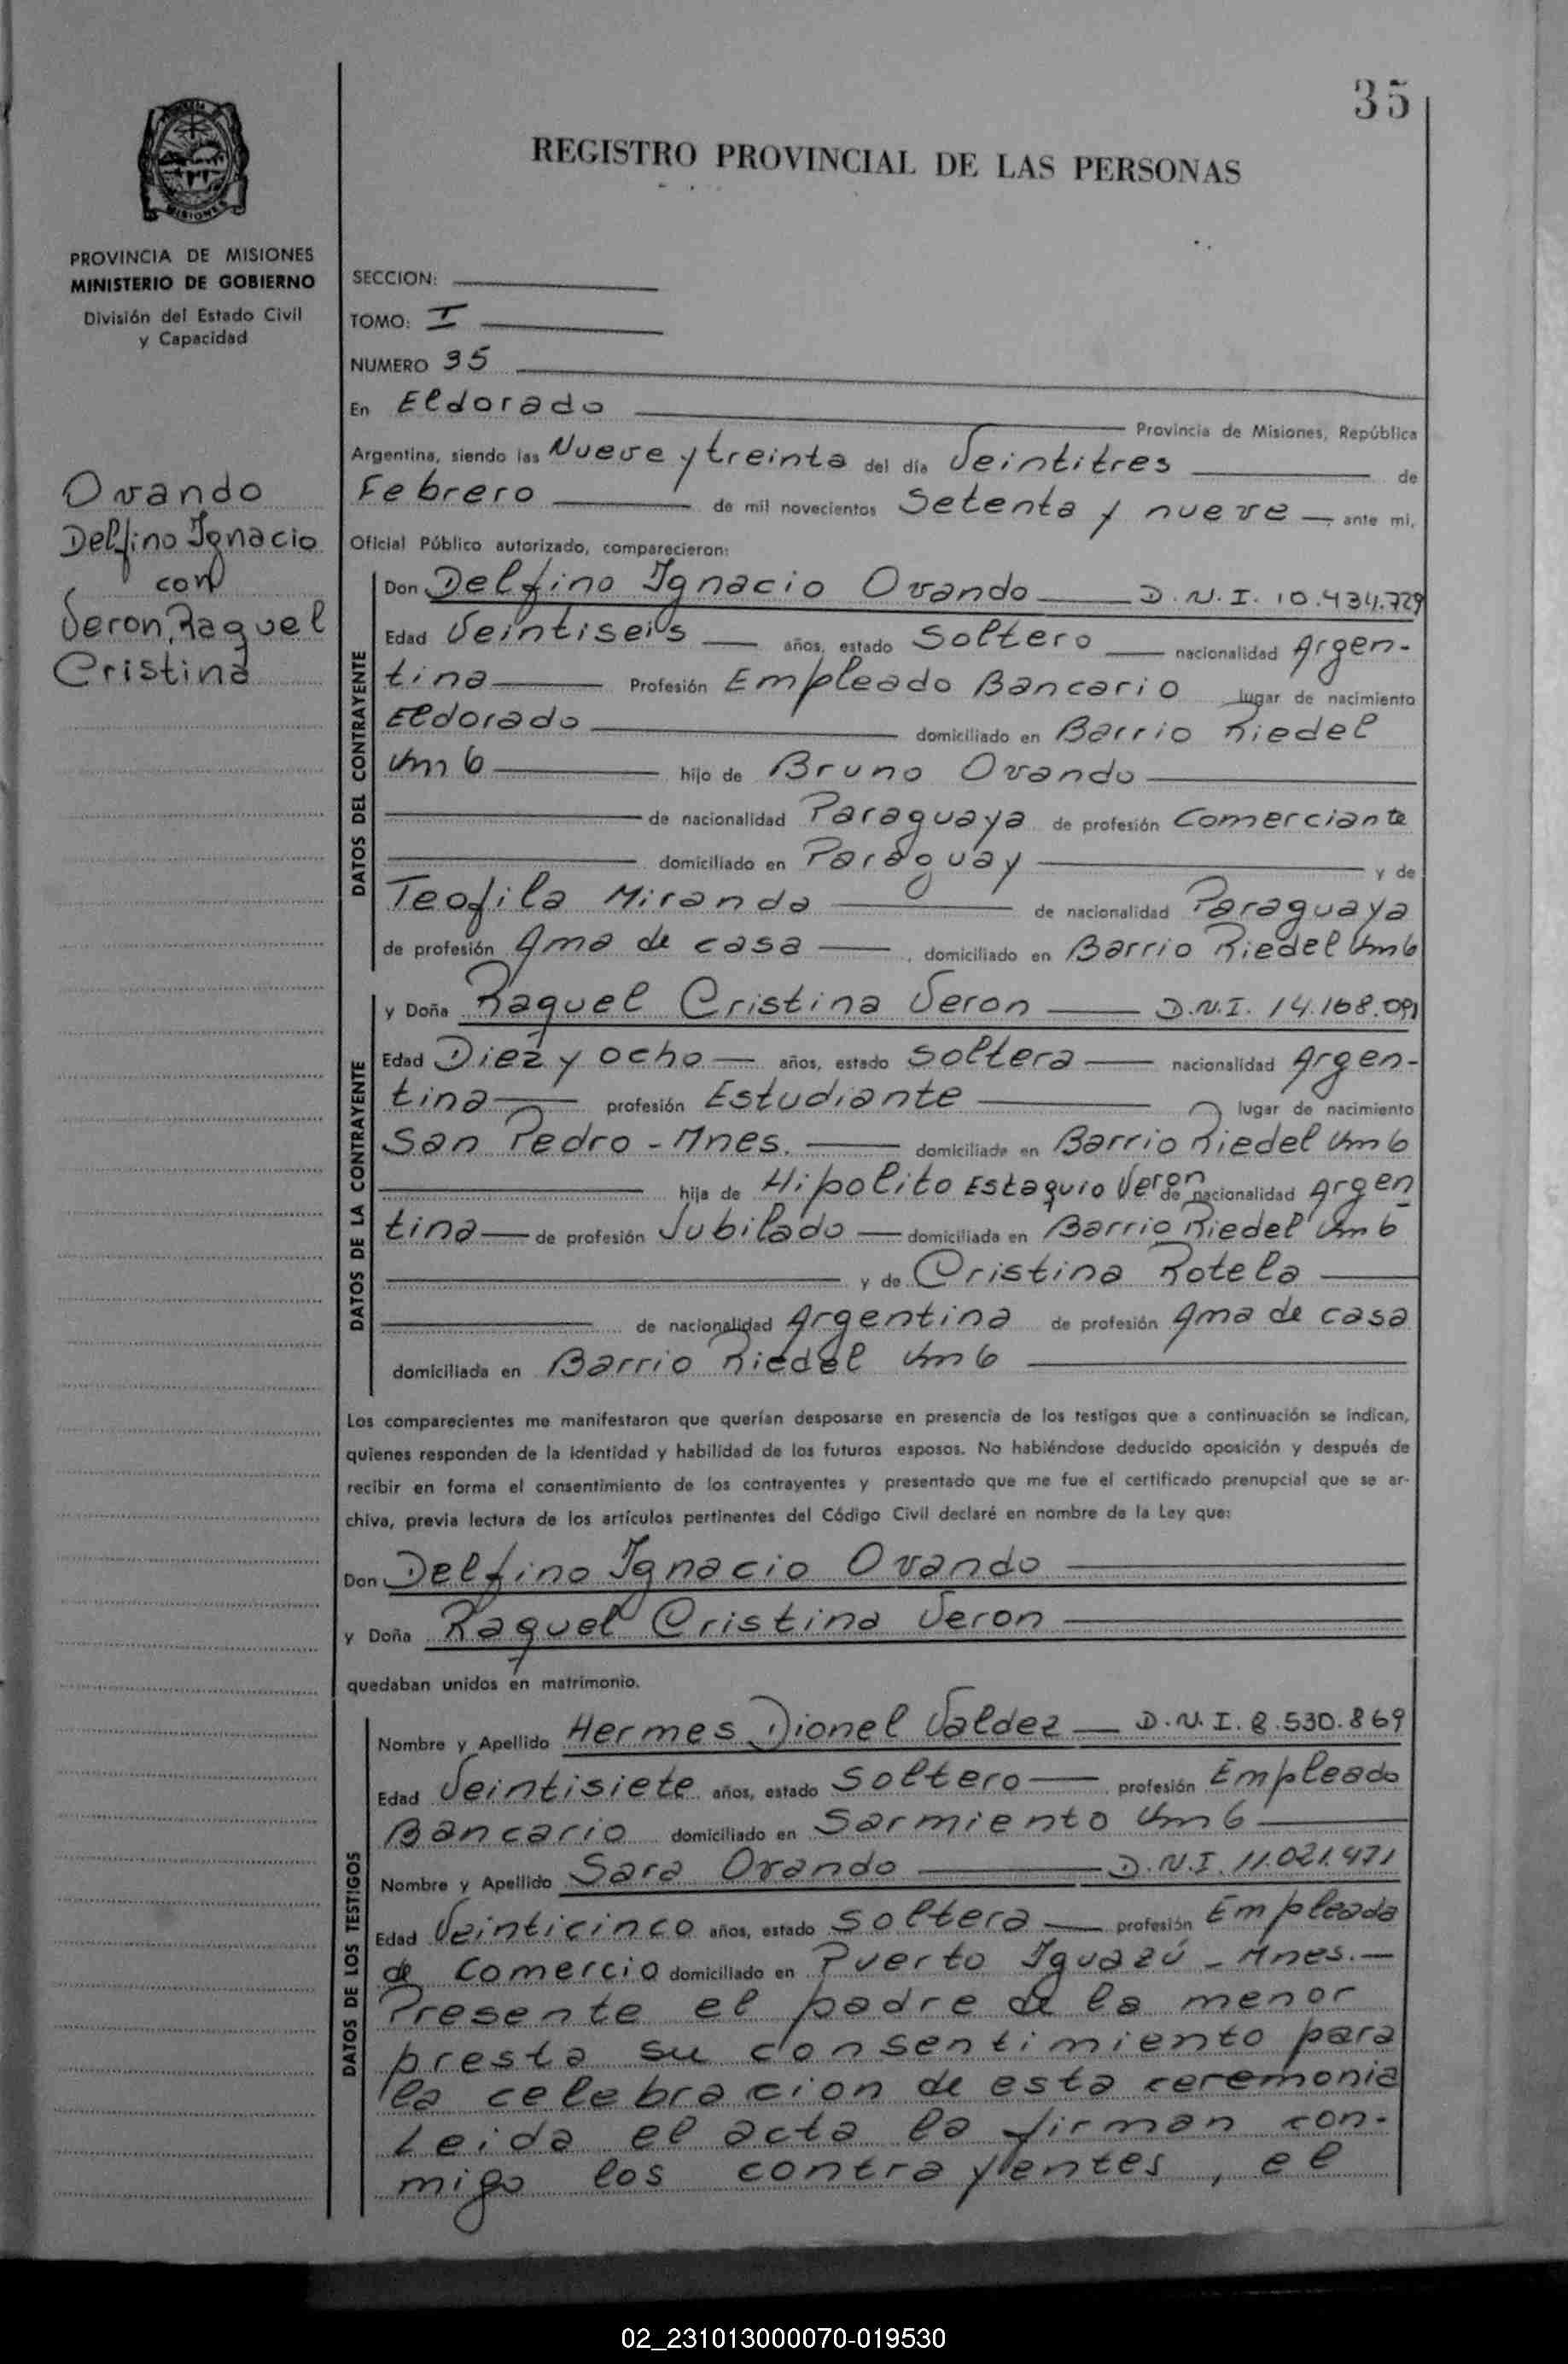 35
REGISTRO PROVINCIAL DE LAS PERSONAS
MISIONES
PROVINCIA DE MISIONES
MINISTERIO DE GOBIERNO
División del Estado Civil
y Capacidad
Ovando
Delfino Ignacio
con
Veron, Raquel
Cristina
SECCION:
TOMO: I
NUMERO 35
En Eldorado
Provincia de Misiones, República
Argentina, siendo las Nueve y treinta del día Veintitres de
Febrero de mil novecientos Setenta y nueve ante mi,
Oficial Público autorizado, comparecieron:
DATOS DEL CONTRAYENTE
Don Delfino Ignacio Ovando D.N.I. 10.434.729
Edad Veintiseis años, estado Soltero nacionalidad Argen-
tina Profesión Empleado Bancario lugar de nacimiento
Eldorado domiciliado en Barrio Riedel
Km 6 hijo de Bruno Ovando
de nacionalidad Paraguaya de profesión Comerciante
domiciliado en Paraguay y de
Teofila Miranda de nacionalidad Paraguaya
de profesión Ama de casa, domiciliado en Barrio Riedel Km 6
DATOS DE LA CONTRAYENTE
y Doña Raquel Cristina Veron D.N.I. 14.168.091
Edad Diez y ocho años, estado Soltera nacionalidad Argen-
tina profesión Estudiante lugar de nacimiento
San Pedro - Mnes. domiciliada en Barrio Riedel Km 6
hija de Hipolito Estaquio Veron de nacionalidad Argen
tina de profesión Jubilado domiciliada en Barrio Riedel Km 6
y de Cristina Rotela
de nacionalidad Argentina de profesión Ama de casa
domiciliada en Barrio Riedel Km 6
Los comparecientes me manifestaron que querían desposarse en presencia de los testigos que a continuación se indican,
quienes responden de la identidad y habilidad de los futuros esposos. No habiéndose deducido oposición y después de
recibir en forma el consentimiento de los contrayentes y presentado que me fue el certificado prenupcial que se ar-
chiva, previa lectura de los artículos pertinentes del Código Civil declaré en nombre de la Ley que:
Don Delfino Ignacio Ovando
y Doña Raquel Cristina Veron
quedaban unidos en matrimonio.
DATOS DE LOS TESTIGOS
Nombre y Apellido Hermes Dionel Valdez D.N.I. 8.530.869
Edad Veintisiete años, estado Soltero profesión Empleado
Bancario domiciliado en Sarmiento Km 6
Nombre y Apellido Sara Ovando D.N.I. 11.021.471
Edad Veinticinco años, estado Soltera profesión Empleada
de Comercio domiciliado en Puerto Iguazú - Mnes.
Presente el padre de la menor
presta su consentimiento para
la celebracion de esta ceremonia
Leida el acta la firman con-
migo los contrayentes, el
02_231013000070-019530